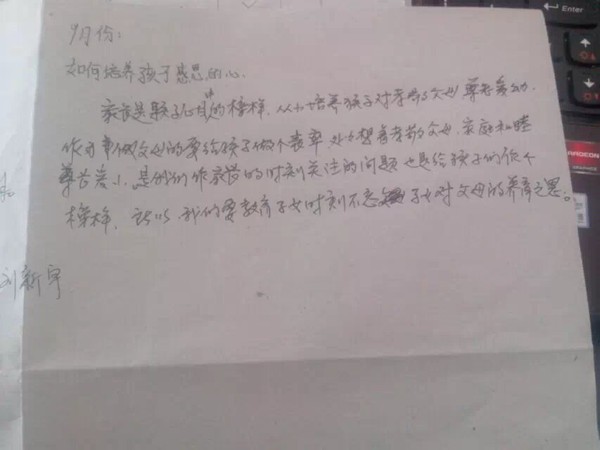 9月份:
如何培养孩子感恩的心.
家长是孩子心目中的榜样, 从小培养孩子对孝敬父母尊老爱幼.
作为事做父母的要给孩子做个表率 处处想着孝敬父母, 家庭和睦
尊长爱小, 是我们作家长的时刻关注的问题 也是给孩子们做个
榜样, 所以 我们要教育子女时刻不忘 子女对父母的养育之恩。
刘新宇
Enter
RADEON